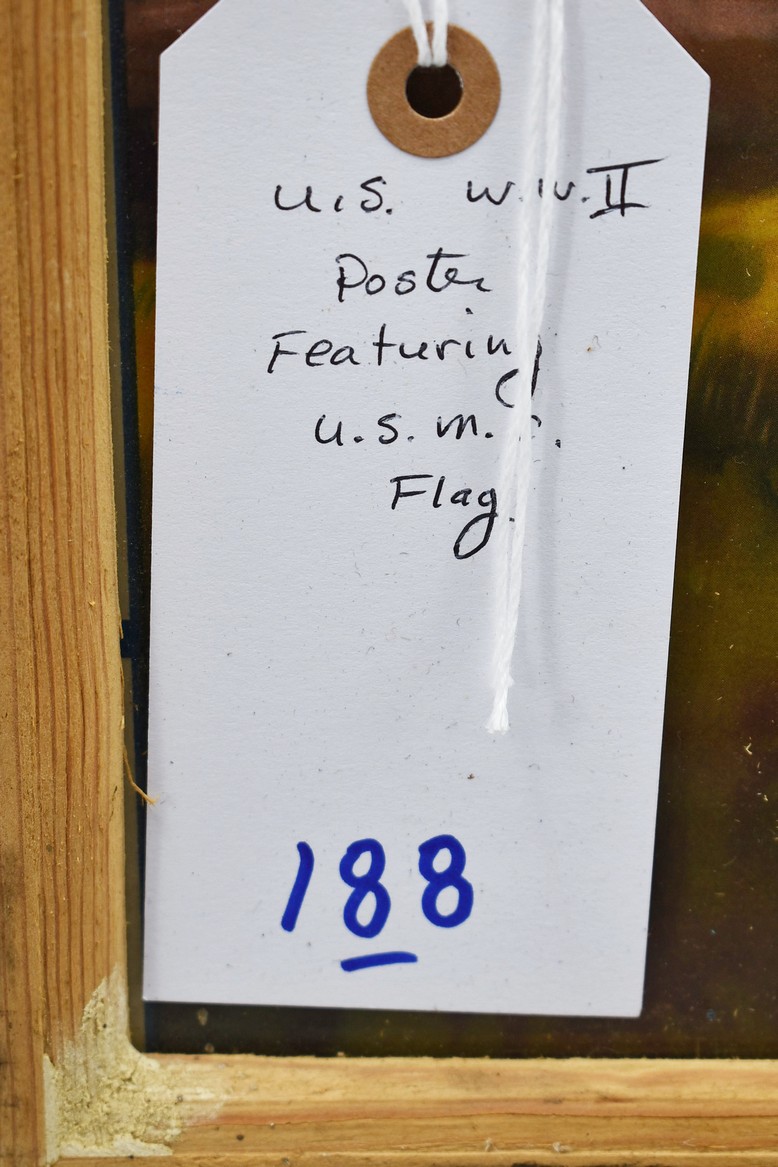 U.S. W.W.II
Poster
Featuring
U.S.M.C.
Flag.
188